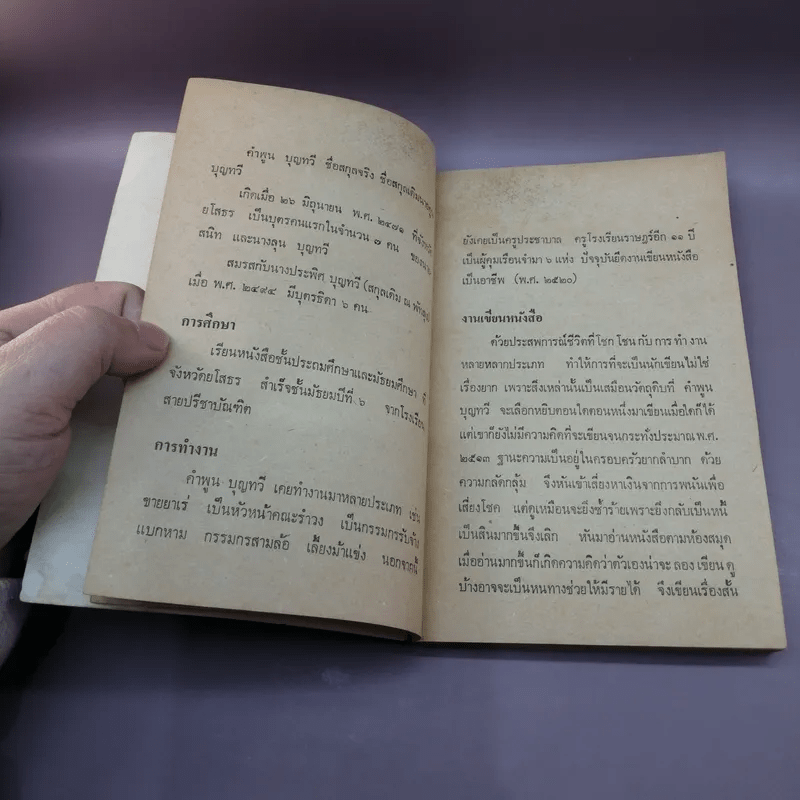 คำพูน บุญทวี ชื่อสกุลจริง ชื่อสกุลเดิม
บุญทวี
เกิดเมื่อ ๒๖ มิถุนายน พ.ศ. ๒๔๗๑
ยโสธร เป็นบุตรคนแรกในจำนวน ๗ คน ของ
สนิท และนางลุน บุญทวี
สมรสกับนางประพิศ บุญทวี (สกุลเดิม ณ
เมื่อ พ.ศ. ๒๔๙๔ มีบุตรธิดา ๖ คน
การศึกษา
เรียนหนังสือชั้นประถมศึกษาและมัธยมศึกษา ที่
จังหวัดยโสธร สำเร็จชั้นมัธยมปีที่ ๖ จากโรงเรียน
สายปรีชาบัณฑิต
การทำงาน
คำพูน บุญทวี เคยทำงานมาหลายประเภท เช่น
ขายยาเร่ เป็นหัวหน้าคณะรำวง เป็นกรรมกรรับจ้าง
แบกหาม กรรมกรสามล้อ เลี้ยงม้าแข่ง นอกจากนี้
ยังเคยเป็นครูประชาบาล ครูโรงเรียนราษฎร์อีก ๑๑ ปี
เป็นผู้คุมเรือนจำมา ๖ แห่ง ปัจจุบันยึดงานเขียนหนังสือ
เป็นอาชีพ (พ.ศ. ๒๕๒๐)
งานเขียนหนังสือ
ด้วยประสพการณ์ชีวิตที่โชกโชนกับการทำงาน
หลายหลากประเภท ทำให้การที่จะเป็นนักเขียนไม่ใช่
เรื่องยาก เพราะสิ่งเหล่านั้นเป็นเสมือนวัตถุดิบที่ คำพูน
บุญทวี จะเลือกหยิบตอนใดตอนหนึ่งมาเขียนเมื่อใดก็ได้
แต่เขาก็ยังไม่มีความคิดที่จะเขียนจนกระทั่งประมาณ พ.ศ.
๒๕๑๓ ฐานะความเป็นอยู่ในครอบครัวยากลำบาก ด้วย
ความกลัดกลุ้ม จึงหันเข้าเสี่ยงหาเงินจากการพนันเพื่อ
เสี่ยงโชค แต่ดูเหมือนจะยิ่งซ้ำร้ายเพราะยิ่งกลับเป็นหนี้
เป็นสินมากขึ้นจึงเลิก หันมาอ่านหนังสือตามห้องสมุด
เมื่ออ่านมากขึ้นก็เกิดความคิดว่าตัวเองน่าจะลองเขียนดู
บ้างอาจจะเป็นหนทางช่วยให้มีรายได้ จึงเขียนเรื่องสั้น